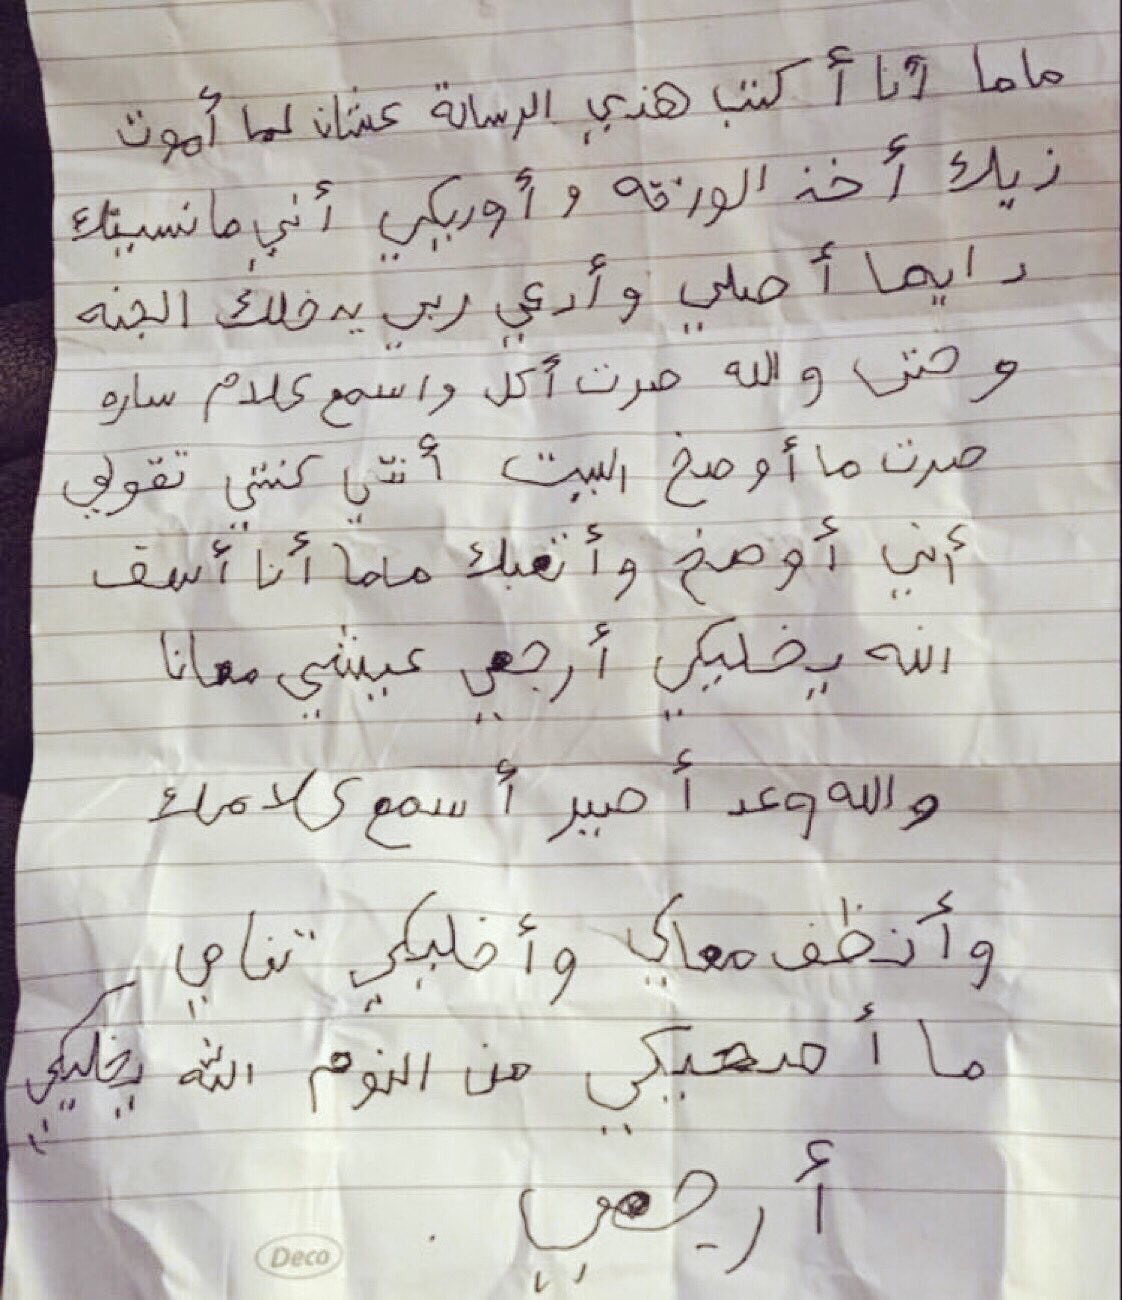 ماما أنا أكتب هذي الرسالة عشان لما أموت
زيك أخذ الورقه و أوريكي أني ما نسيتك
دايما أصلي و أدعي ربي يدخلك الجنه
و حتى والله صرت أكل واسمع كلام ساره
صرت ما أوصخ البيت أنتي كنتي تقولي
أني أوصخ وأتعبك ماما أنا أسف
الله يخليكي أرجعي عيشي معانا
والله وعد أصير أسمع كلامك
وأنظف معاكي وأخليكي تنامي
ما أصحيكي من النوم الله يخليكي
أرجعي
Deco